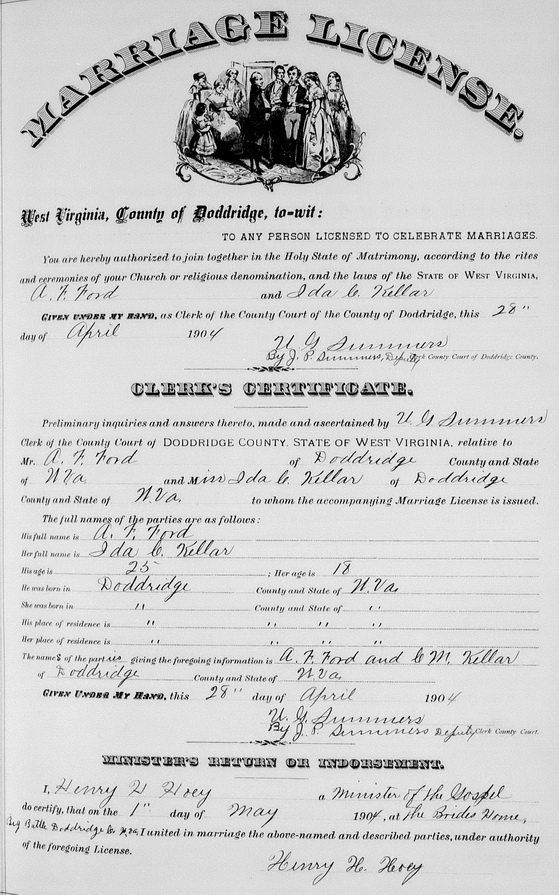 MARRIAGE LICENSE.
West Virginia, County of Doddridge, to-wit:
TO ANY PERSON LICENSED TO CELEBRATE MARRIAGES.
You are hereby authorized to join together in the Holy State of Matrimony, according to the rites
and ceremonies of your Church or religious denomination, and the laws of the STATE OF WEST VIRGINIA,
A. F. Ford and Ida C. Kellar
GIVEN UNDER MY HAND, as Clerk of the County Court of the County of Doddridge, this 28"
day of April 1904
U G Summers
By J. P. Summers, Deputy Clerk County Court of Doddridge County.
CLERK'S CERTIFICATE.
Preliminary inquiries and answers thereto, made and ascertained by U G Summers
Clerk of the County Court of DODDRIDGE COUNTY, STATE OF WEST VIRGINIA, relative to
Mr. A. F. Ford of Doddridge County and State
of W Va. and Miss Ida C. Kellar of Doddridge
County and State of W. Va. to whom the accompanying Marriage License is issued.
The full names of the parties are as follows:
His full name is A. F. Ford
Her full name is Ida C. Kellar
His age is 25 ; Her age is 18
He was born in Doddridge County and State of W. Va.
She was born in " County and State of "
His place of residence is " " " "
Her place of residence is " " " "
The names of the parties giving the foregoing information is A. F. Ford and C M. Kellar
of Doddridge County and State of W Va
GIVEN UNDER MY HAND, this 28" day of April 1904
U. G. Summers
By J. P. Summers Deputy Clerk County Court.
MINISTER'S RETURN OR INDORSEMENT.
I, Henry H Hoey a Minister of the Gospel
do certify, that on the 1" day of May 1904, at the Brides Home,
Doddridge Co W, Va, I united in marriage the above-named and described parties, under authority
of the foregoing License.
Henry H. Hoey